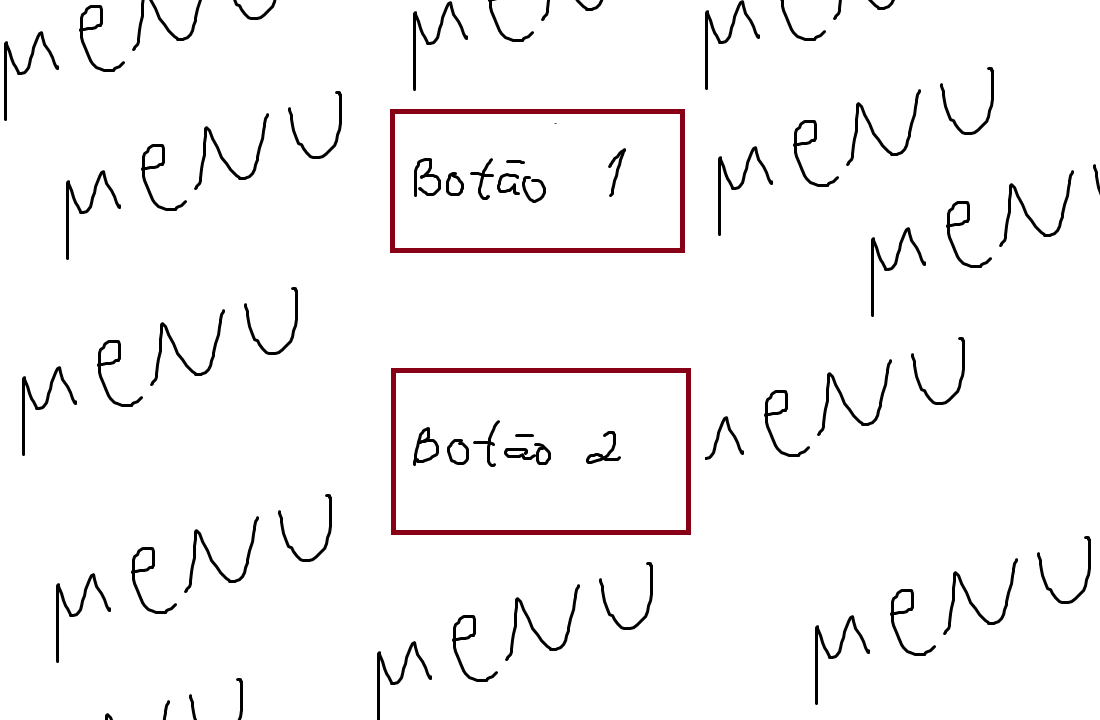 menu
menu
menu
menu
Botão 1
menu
menu
menu
Botão 2
menu
menu
menu
menu